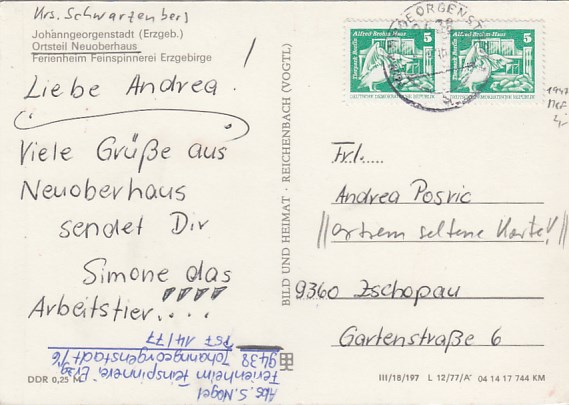 Krs. Schwarzenberg
Johanngeorgenstadt (Erzgeb.)
Ortsteil Neuoberhaus
Ferienheim Feinspinnerei Erzgebirge
Liebe Andrea!
Viele Grüße aus
Neuoberhaus
sendet Dir
Simone das
Arbeitstier....
Abs. S. Nagel
Ferienheim "Feinspinnerei Erzg."
9438 Johanngeorgenstadt/6
PSF 14/77
DDR 0,25 M
BILD UND HEIMAT · REICHENBACH (VOGTL)
Alfred Brehm Haus
Tierpark Berlin
5
DEUTSCHE DEMOKRATISCHE REPUBLIK
Alfred Brehm Haus
Tierpark Berlin
5
DEUTSCHE DEMOKRATISCHE REPUBLIK
Frl.....
Andrea Posvic
||extrem seltene Karte!||
9360 Zschopau
Gartenstraße 6
III/18/197 L 12/77/A 04 14 17 744 KM